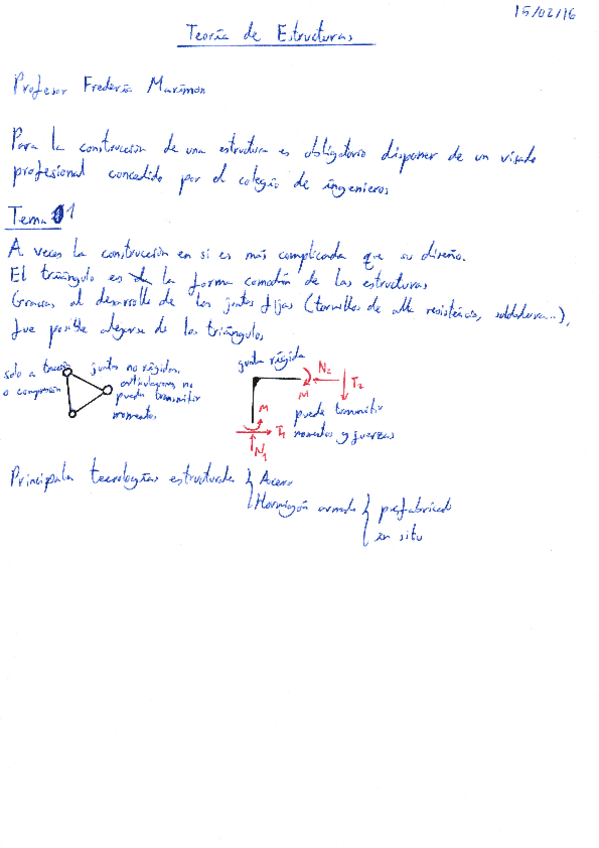 15/02/16
Teoría de Estructuras
Profesor Frederic Marimon
Para la construcción de una estructura es obligatorio disponer de un visado
profesional concedido por el colegio de ingenieros
Tema 1
A veces la construcción en si es más complicada que su diseño.
El triángulo es la forma comodín de las estructuras
Gracias al desarrollo de las juntas fijas (tornillos de alta resistencia, soldadura...),
fue posible alejarse de los triángulos
solo a tracción
o compresión
juntas no rígidas.
articulaciones no
puede transmitir
momentos.
junta rígida
N2
T2
M
M
T1
N1
puede transmitir
momentos y fuerzas
Principales tecnologías estructurales { Acero
Hormigón armado { prefabricado
in situ